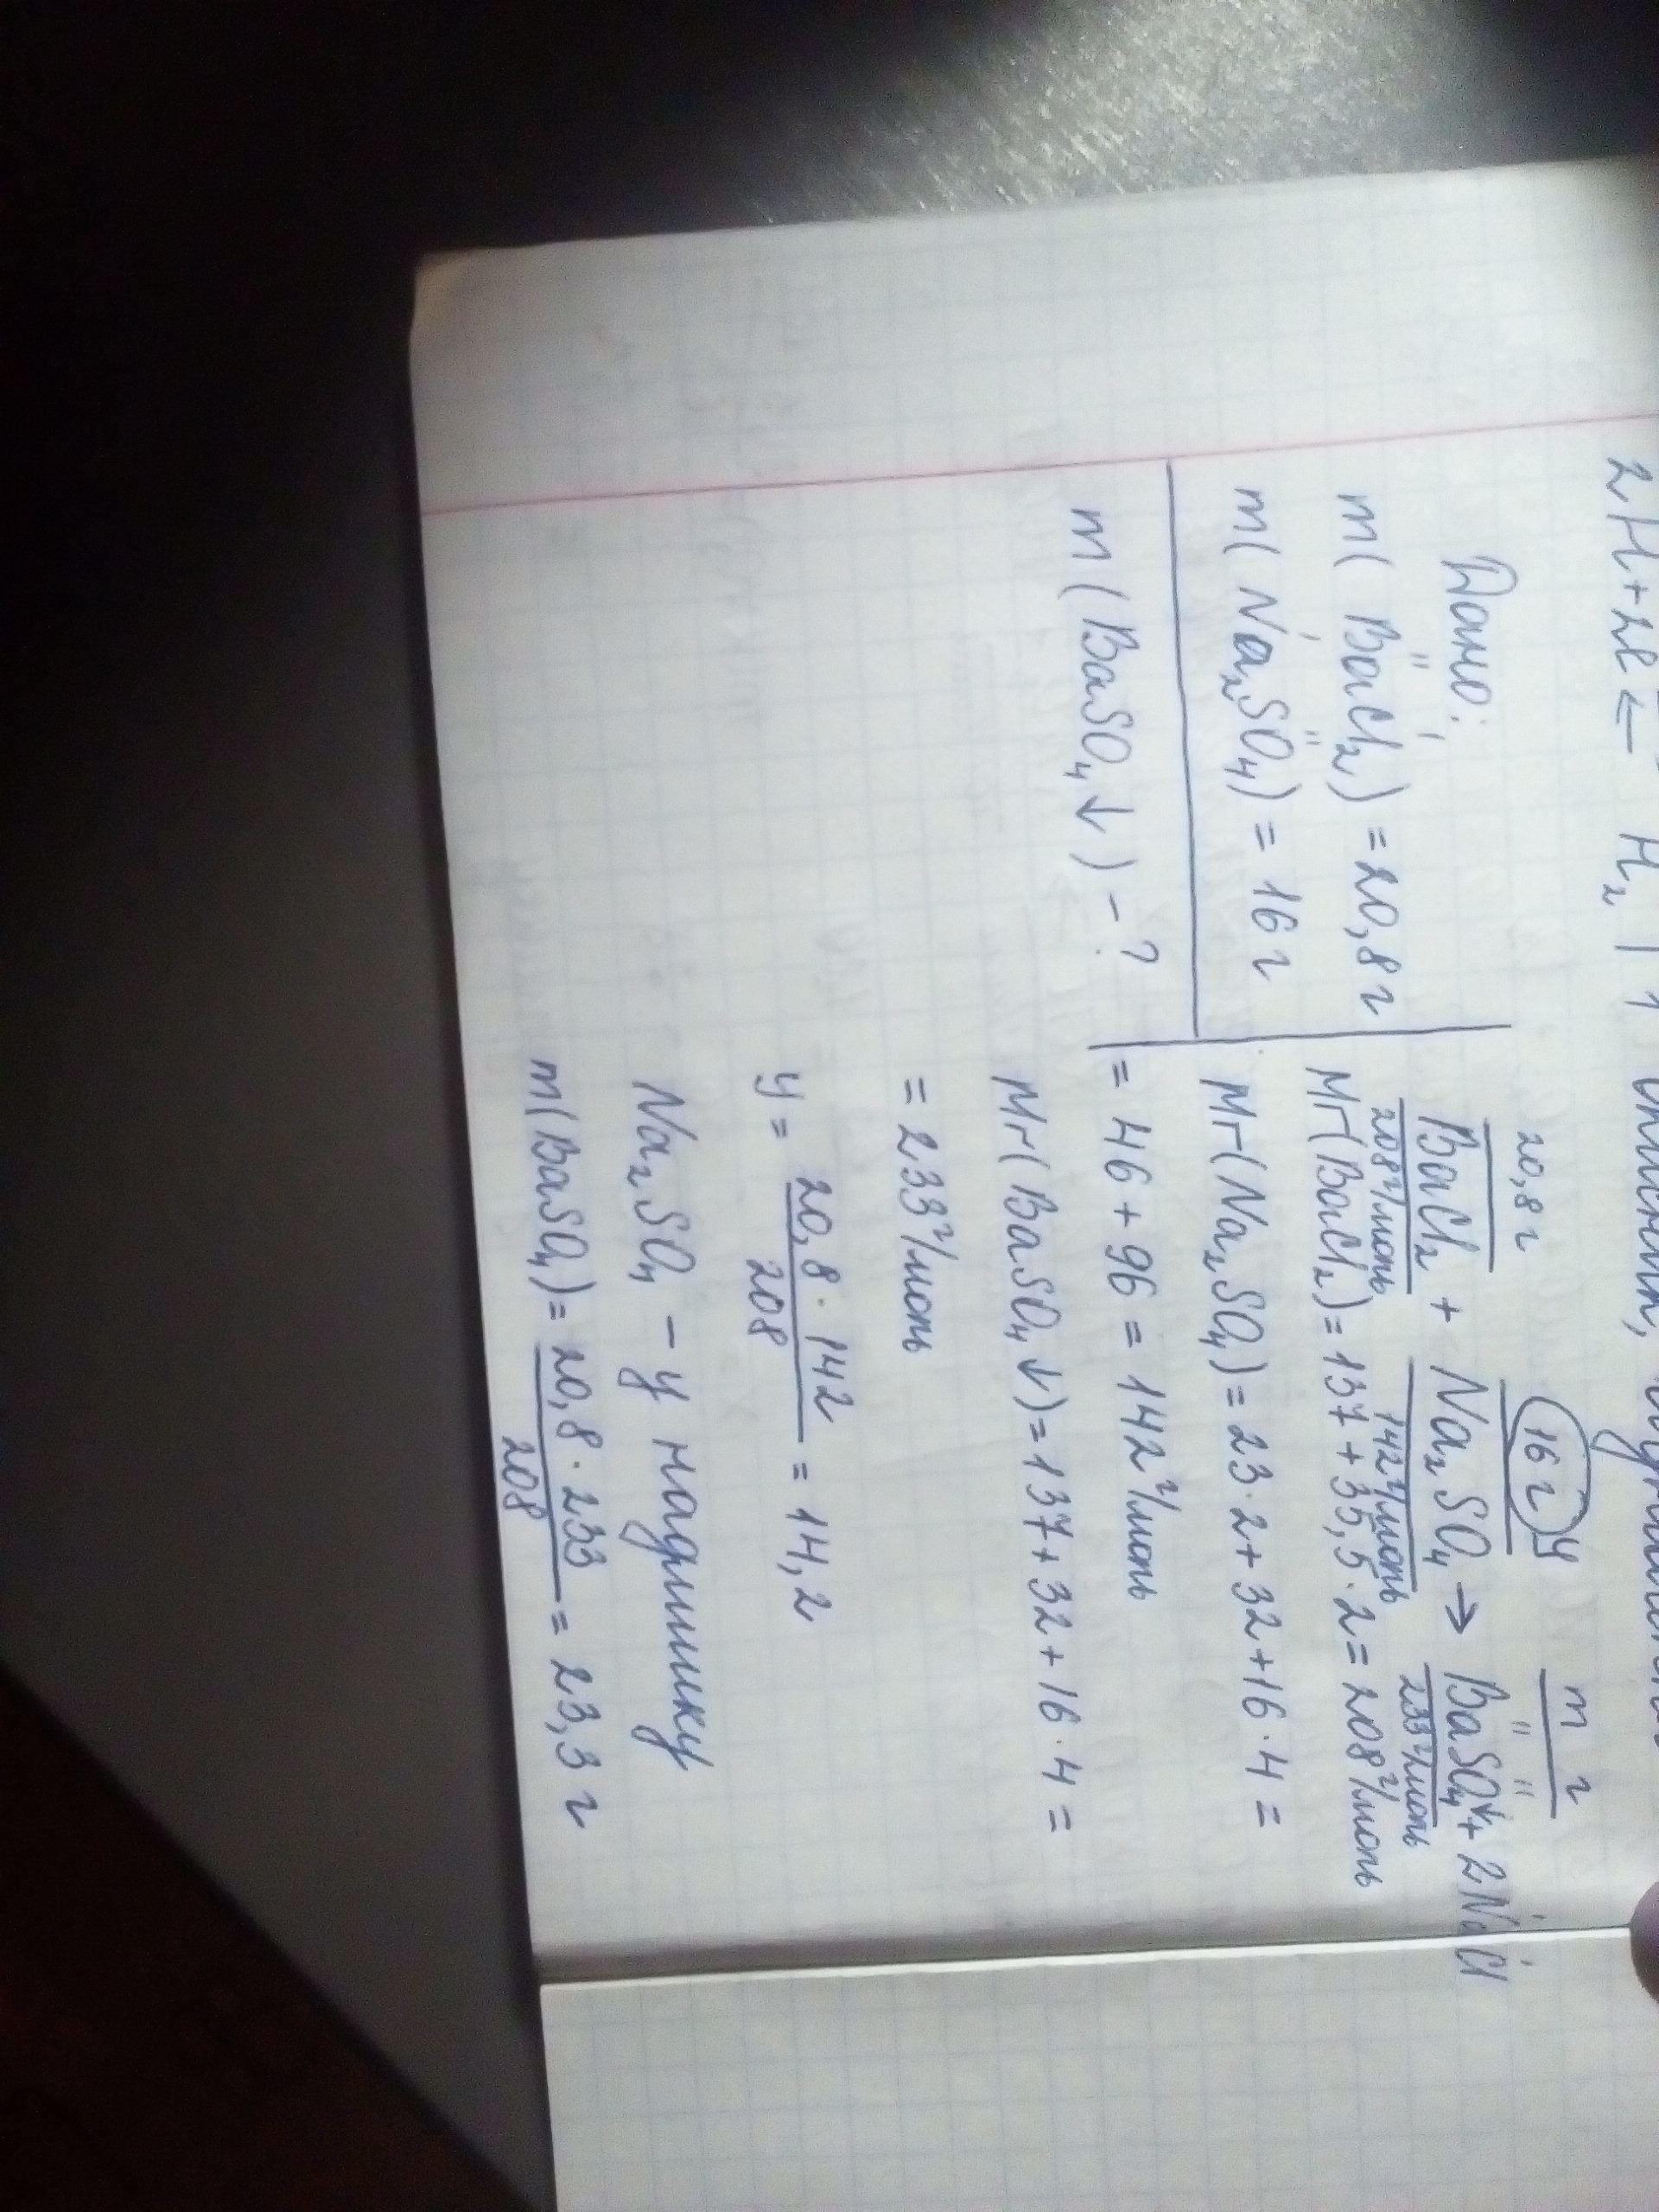 2H+2e ← H₂ | 1
Дано:
m( BaCl₂) = 20,8 г
m( Na₂SO₄) = 16 г
m (BaSO₄↓) - ?
20,8 г 16 г y m г
BaCl₂ + Na₂SO₄ → BaSO₄↓ + 2NaCl
208 г/моль 142 г/моль 233 г/моль
Mr(BaCl₂) = 137 + 35,5 · 2 = 208 г/моль
Mr(Na₂SO₄) = 23 · 2 + 32 + 16 · 4 =
= 46 + 96 = 142 г/моль
Mr(BaSO₄↓) = 137 + 32 + 16 · 4 =
= 233 г/моль
y = 20,8 · 142 / 208 = 14,2
Na₂SO₄ - у надлишку
m(BaSO₄) = 20,8 · 233 / 208 = 23,3 г